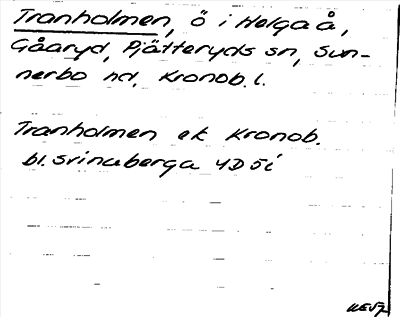 Tranholmen, ö i Helga å,
Gåaryd, Pjätteryds sn, Sun-
nerbo hd, Kronob. l.
Tranholmen ek Kronob.
bl. Svinaberga 4D 5i